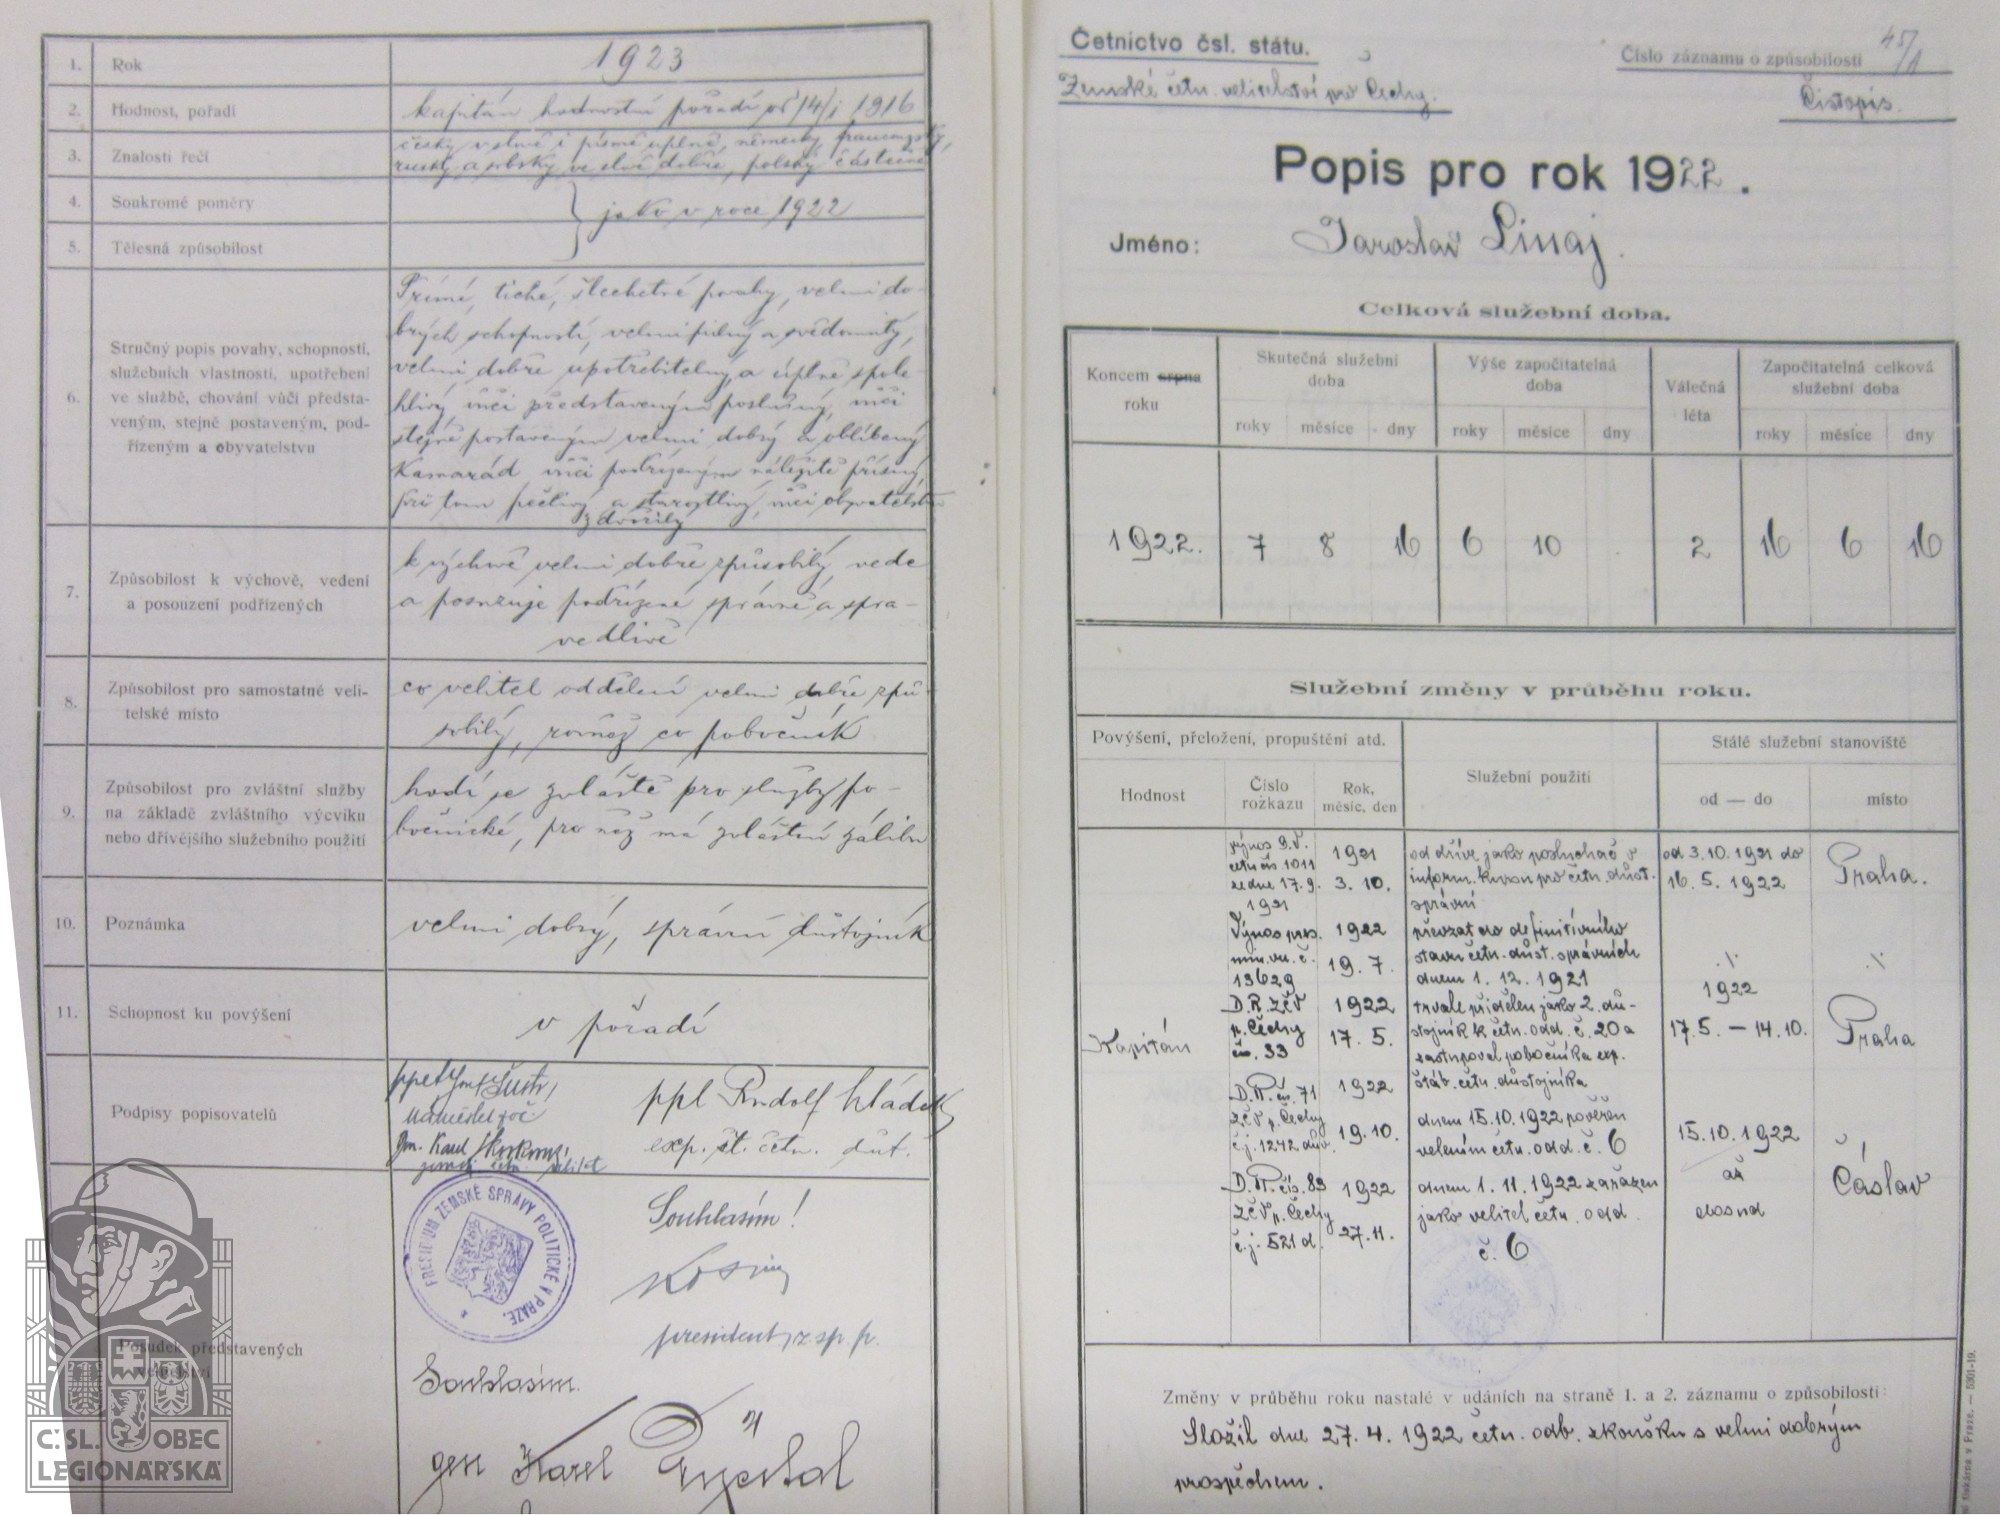 1. Rok 1923
2. Hodnost, pořadí kapitán hodnostní pořadí od 14/I 1916
3. Znalosti řečí česky v slově i písmě úplně, německy, francouzsky,
rusky a srbsky ve slově dobře, polsky částečně
4. Soukromé poměry
jako v roce 1922
5. Tělesná způsobilost
6. Stručný popis povahy, schopností,
služebních vlastností, upotřebení
ve službě, chování vůči představeným,
stejně postaveným, podřízeným
a obyvatelstvu
Přímé, tiché, šlechetné povahy, velmi do-
brých schopností, velmi pilný a svědomitý,
velmi dobře upotřebitelný a úplně spole-
hlivý, vůči představeným poslušný, vůči
stejně postaveným velmi dobrý a oblíbený
kamarád vůči podřízeným náležitě přísný,
při tom pečlivý a starostlivý, vůči obyvatelstvu
zdvořilý
7. Způsobilost k výchově, vedení
a posouzení podřízených
k výchově velmi dobře způsobilý, vede
a posuzuje podřízené správně a spra-
vedlivě
8. Způsobilost pro samostatné veli-
telské místo
co velitel oddělení velmi dobře způ-
sobilý, rovněž co pobočník
9. Způsobilost pro zvláštní služby
na základě zvláštního výcviku
nebo dřívějšího služebního použití
hodí se zvláště pro služby po-
bočnické, pro něž má zvláštní zálibu
10. Poznámka velmi dobrý, správní důstojník
11. Schopnost ku povýšení v pořadí
Podpisy popisovatelů
ppl Rudolf Hládek
exp. št. četn. důst.
gen. Karel
zemský četn. velitel
PRESIDIUM ZEMSKÉ SPRÁVY POLITICKÉ V PRAZE.
Souhlasím!
Kosina
president z. sp. p.
Posudek představených
velitelství
Souhlasím.
gen Karel
Č.SL. OBEC
LEGIONÁŘSKÁ
Četnictvo čsl. státu.
Zemské četn. velitelství pro Čechy.
Číslo záznamu o způsobilosti 45/
Čistopis.
Popis pro rok 1922.
Jméno: Jaroslav
Celková služební doba.
Koncem srpna
roku
Skutečná služební
doba
Výše započitatelná
doba
Válečná
léta
Započitatelná celková
služební doba
roky měsíce dny roky měsíce dny roky měsíce dny
1922. 7 8 16 6 10 2 16 6 16
Služební změny v průběhu roku.
Povýšení, přeložení, propuštění atd.
Služební použití
Stálé služební stanoviště
Hodnost
Číslo
rozkazu
Rok,
měsíc, den
od — do
místo
Kapitán
výnos G. V.
četn. čís 1011
ze dne 17. 9.
1921
1921
3. 10.
od dříve jako posluchač v
inform. kursu pro četn. důst.
správní
od 3. 10. 1921 do
16. 5. 1922
Praha.
Výnos pres.
min. vn. č.
13629
1922
19. 7.
převzat do definitivního
stavu četn. důst. správních
dnem 1. 12. 1921
./.
./.
D. R. ZČV
p. Čechy
čís. 33
1922
17. 5.
trvale přidělen jako 2. dů-
stojník k četn. odd. č. 20 a
zastupoval pobočníka exp.
štáb. četn. důstojníka
1922
17. 5. — 14. 10.
Praha
D. R. čís. 71
ZČV p. Čechy
č. j. 1242 dův.
1922
19. 10.
dnem 15. 10. 1922 pověřen
velením četn. odd. č. 6
15. 10. 1922
až
dosud
Čáslav
D. R. čís. 83
ZČV p. Čechy
č. j. 521 d.
1922
27. 11.
dnem 1. 11. 1922 zařazen
jako velitel četn. odd.
č. 6
Změny v průběhu roku nastalé v udáních na straně 1. a 2. záznamu o způsobilosti:
Složil dne 27. 4. 1922 četn. odb. zkoušku s velmi dobrým
prospěchem.
tiskárna v Praze. — 5301-19.